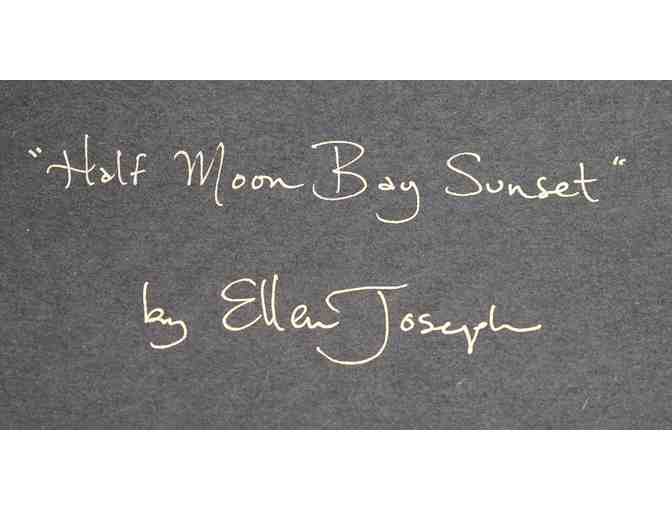 "Half Moon Bay Sunset"
by Ellen Joseph